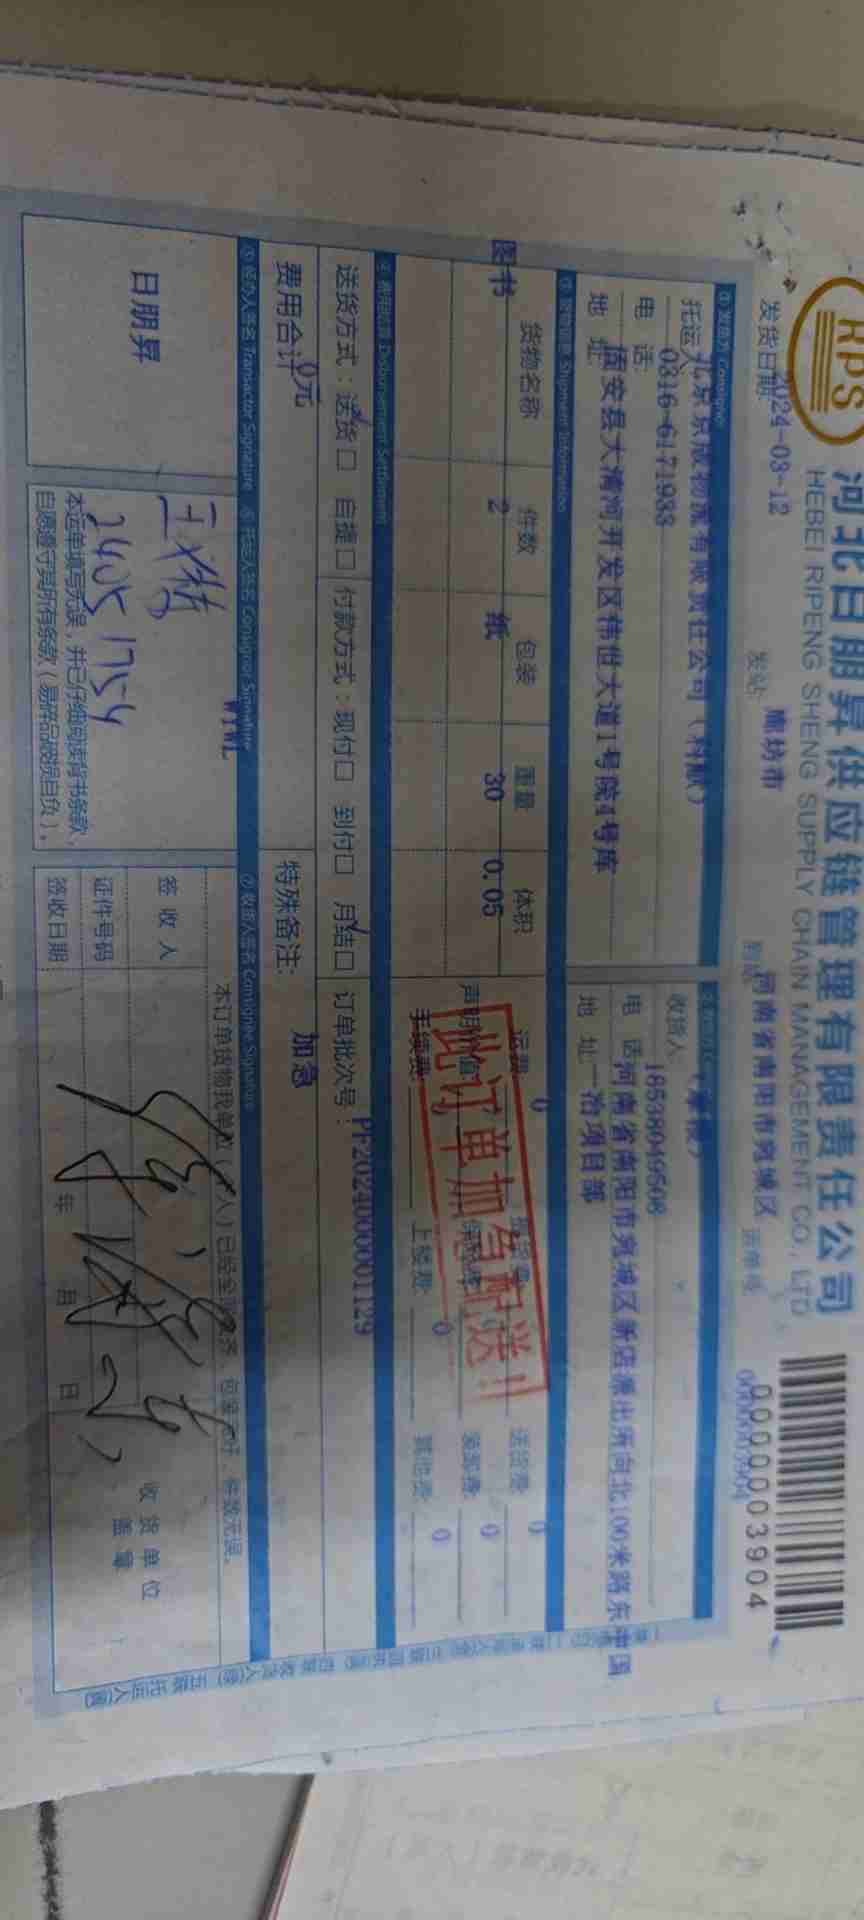 RPS
河北日朋昇供应链管理有限责任公司
HEBEI RIPENG SHENG SUPPLY CHAIN MANAGEMENT CO., LTD
0000003904
发货日期: 2024-03-12
发站: 廊坊市
到站: 河南省南阳市宛城区
运单号: 0000003904
① 发货方 Consignor
托运人 北京京版物流有限责任公司(科献)
电 话: 0316-6171988
地 址: 固安县大清河开发区伟世大道1号院4号库
收货人
电 话 18538049508
地 址: 河南省南阳市宛城区新店派出所向北100米路东中国
一冶项目部
③ 货物信息 Shipment Information
货物名称 件数 包装 重量 体积
图书 2 纸 30 0.05
运费: 0
送货费: 0
声明价值:
装卸费: 0
手续费:
上楼费: 0
其他费: 0
此订单加急配送!!
④ 费用结算 Disbursement Settlement
送货方式: 送货☑ 自提□ 付款方式: 现付□ 到付□ 月结☑ 订单批次号: PF2024000001129
费用合计: 0元
特殊备注: 加急
⑤ 经办人签名 Transactor Signature
⑥ 托运人签名 Consignor Signature
⑦ 收货人签名 Consignee Signature
日朋昇
WLWL
2405 1754
本运单填写无误,并已仔细阅读背书条款,
自愿遵守其所有条款(易碎品破损自负)。
签收人
证件号码
签收日期
年 月 日
收货单位
盖章